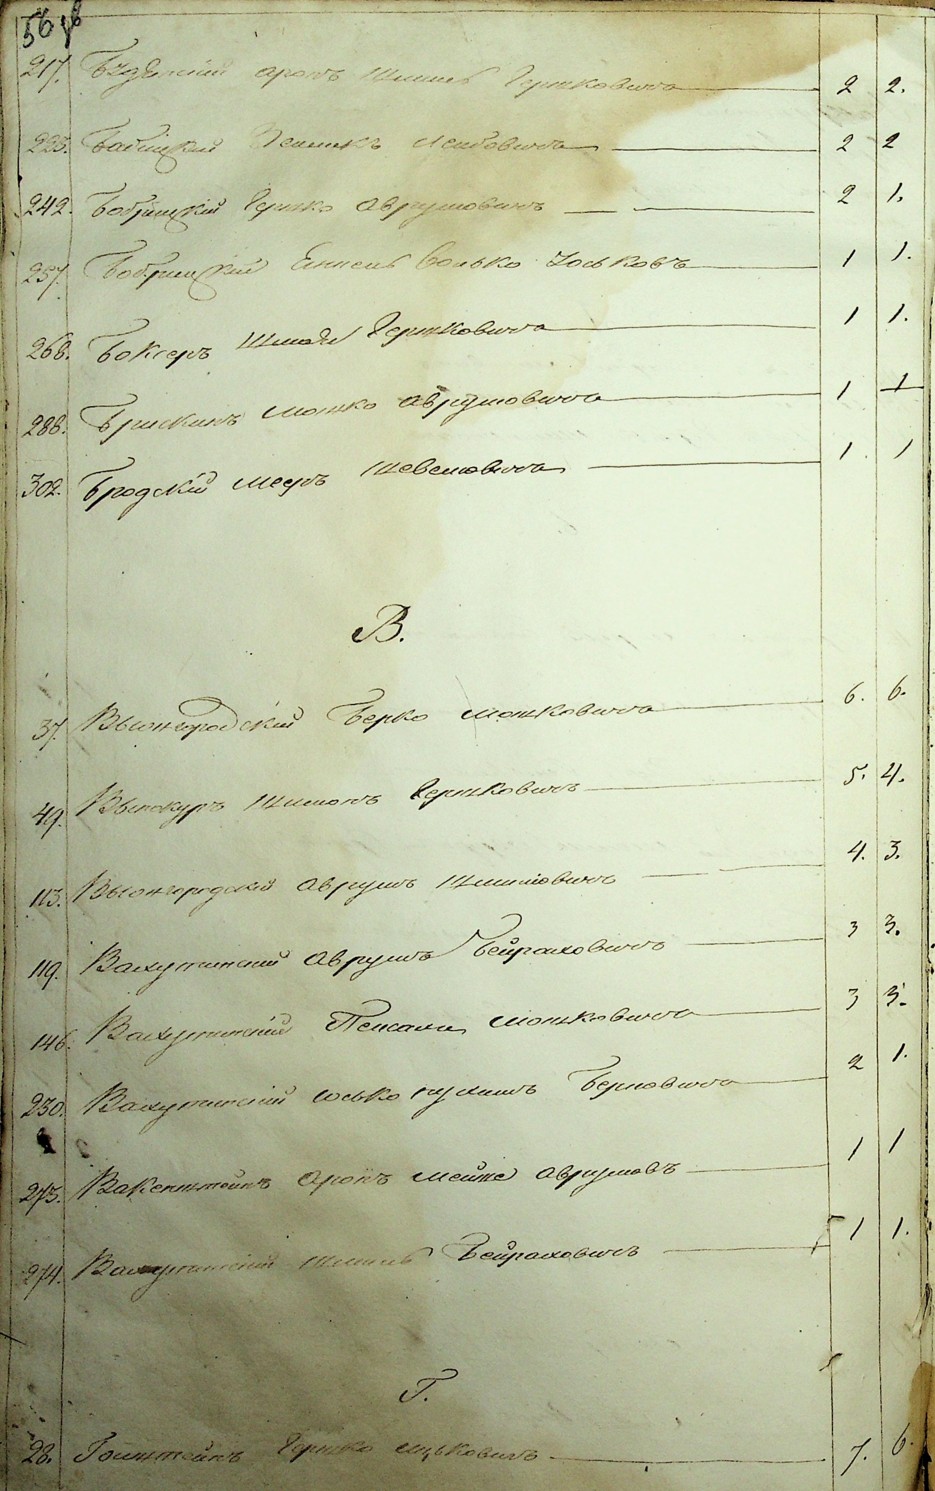 56
217. Аронъ Шлиома Гершковичъ 2 2.
225. Бабицкий Лейбовичъ 2 2
242. Бобрицкий Гершко Аврумовичъ 2 1.
257. Бобрицкий Волько Іоськовъ 1 1.
268. Боксеръ Шмойл Гершковичъ 1 1.
288. Брискинъ Мошко Аврумовичъ 1 1
302. Бродский Мееръ Шевелювичъ 1 1
В.
37. Вышгородский Берко Мошковичъ 6. 6.
49. Выскуръ Шимонъ Гершковичъ 5. 4.
113. Вышгородский Аврумъ 4. 3.
119. Вахутинский Аврумъ Бейраховичъ 3 3.
146. Вахутинский Пейсах Мошковичъ 3 3.
230. Вахутинский Іосько Нухимъ Берковичъ 2 1.
273. Вакенштейнъ Аронъ Мейше Аврумовъ 1 1
274. Вахутинский Бейраховичъ 1 1.
Г.
28. Гольштейнъ Гершко Ицьковичъ 7. 6.